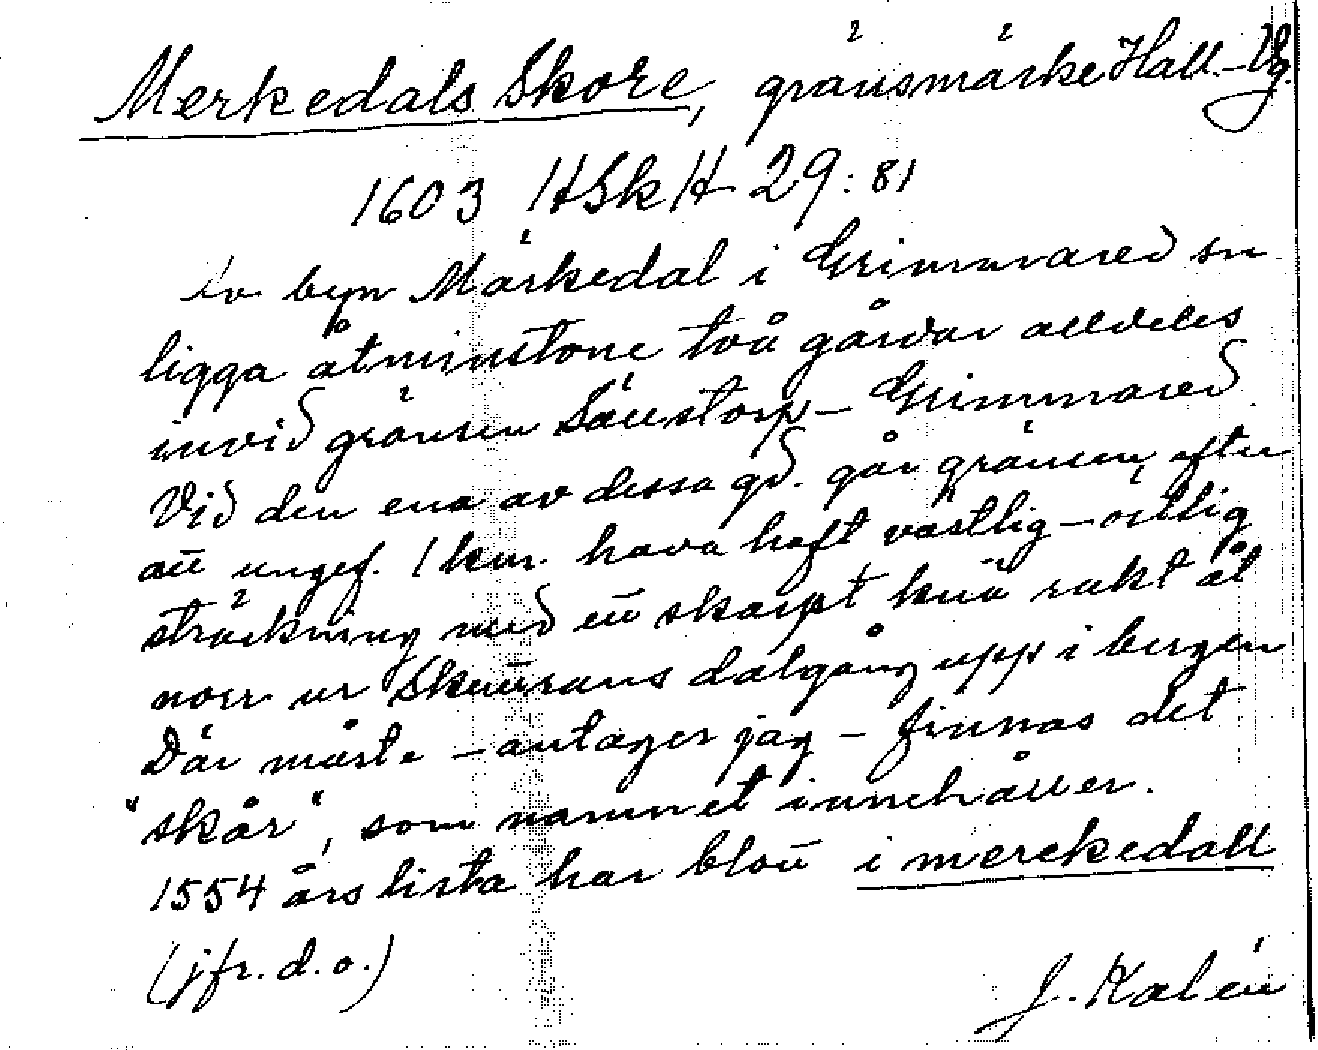 Merkedals Skore, gränsmärke Hall.-Vg.
1603 HSkH 29:81
Av byn Märkedal i Grimmared sn
ligga åtminstone två gårdar alldeles
invid gränsen Sällstorp – Grimmared.
Vid den ena av dessa gd. går gränsen, efter
att ungef. 1 km. hava haft västlig – östlig
sträckning med ett skarpt knä rakt åt
norr ur Skuttrans dalgång upp i bergen
Där måste – antager jag – finnas det
"skår", som namnet innehåller.
1554 års lista har blott i merckedall
(jfr. d. o.)
J. Kalén